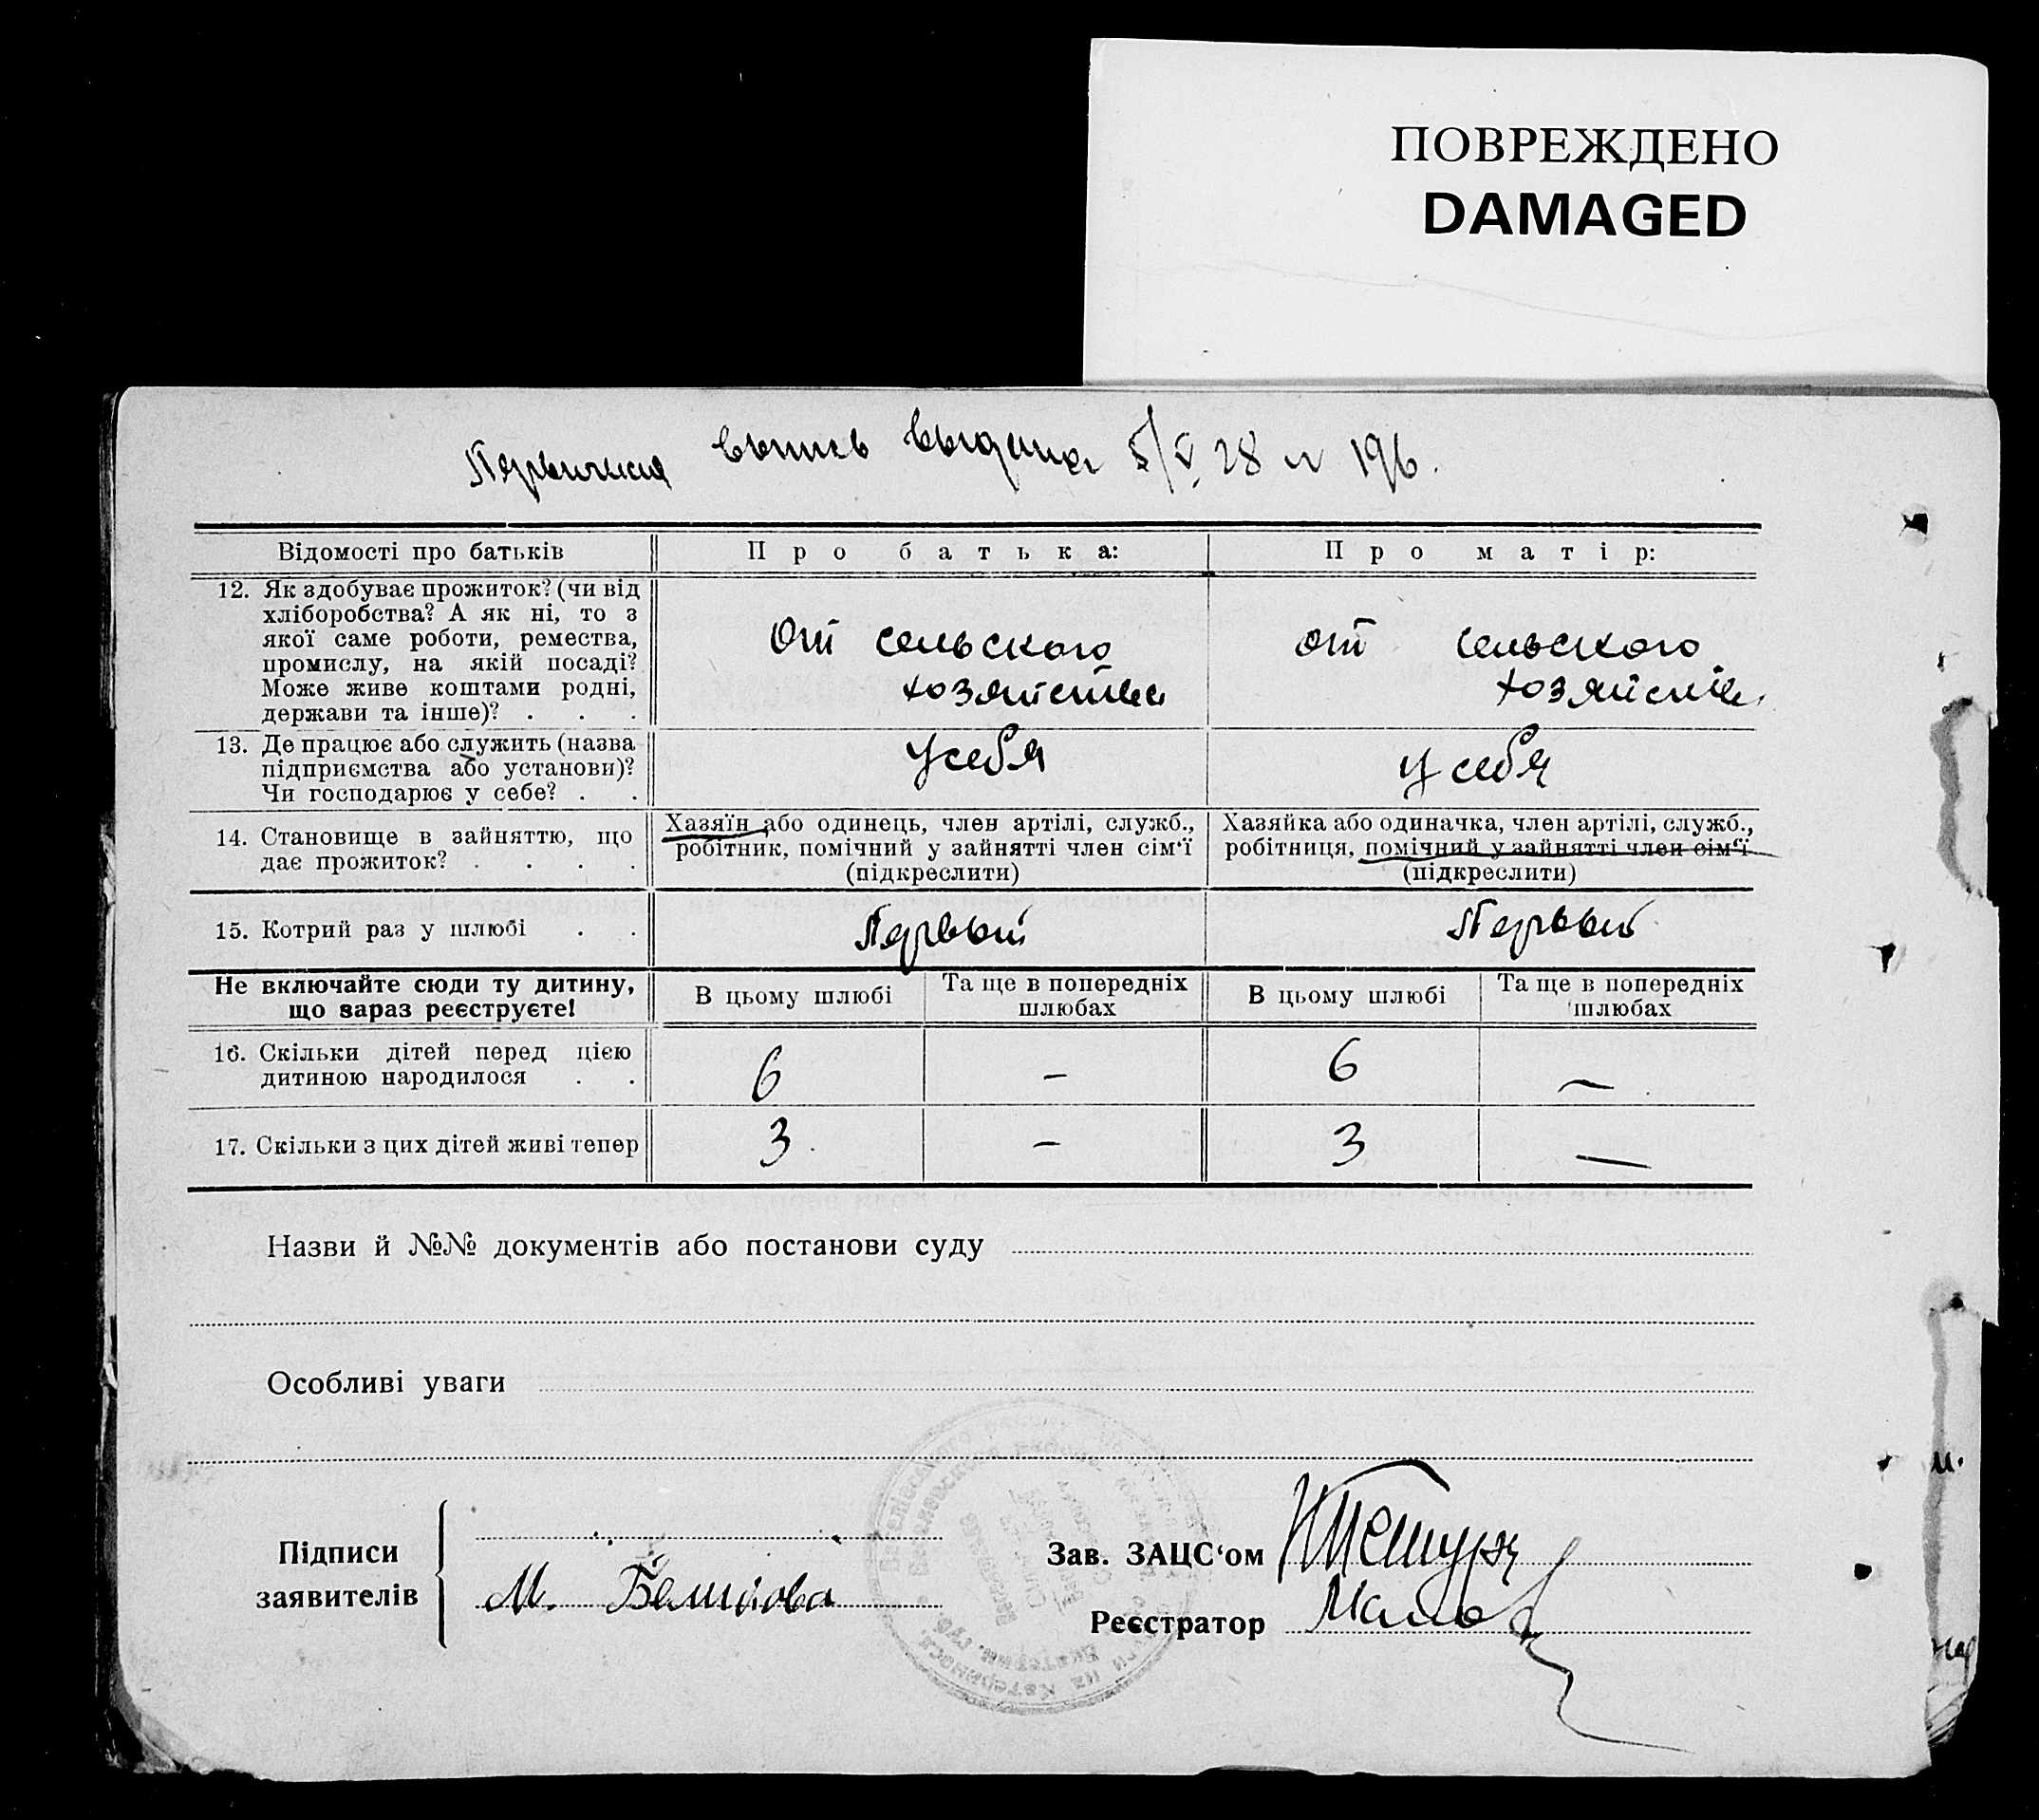 ПОВРЕЖДЕНО
DAMAGED
Первичная выпись выдана 5/V 28 № 196.
Відомості про батьків
Про батька:
Про матір:
12. Як здобуває прожиток? (чи від
хліборобства? А як ні, то з
якої саме роботи, ремества,
промислу, на якій посаді?
Може живе коштами родні,
держави та інше)? . . .
От сельского
хозяйства
от сельского
хозяйства
13. Де працює або служить (назва
підприємства або установи)?
Чи господарює у себе? . .
у себя
у себя
14. Становище в зайняттю, що
дає прожиток? . . . .
Хазяїн або одинець, член артілі, служб.,
робітник, помічний у зайнятті член сім‘ї
(підкреслити)
Хазяйка або одиначка, член артілі, служб.,
робітниця, помічний у зайнятті член сім‘ї
(підкреслити)
15. Котрий раз у шлюбі . .
Первый
Первый
Не включайте сюди ту дитину,
що зараз реєструєте!
В цьому шлюбі
Та ще в попередніх
шлюбах
В цьому шлюбі
Та ще в попередніх
шлюбах
16. Скільки дітей перед цією
дитиною народилося . .
6
–
6
–
17. Скільки з цих дітей живі тепер
3
–
3
–
Назви й №№ документів або постанови суду
Особливі уваги
Підписи
заявителів
М.
Зав. ЗАЦС‘ом
Реєстратор